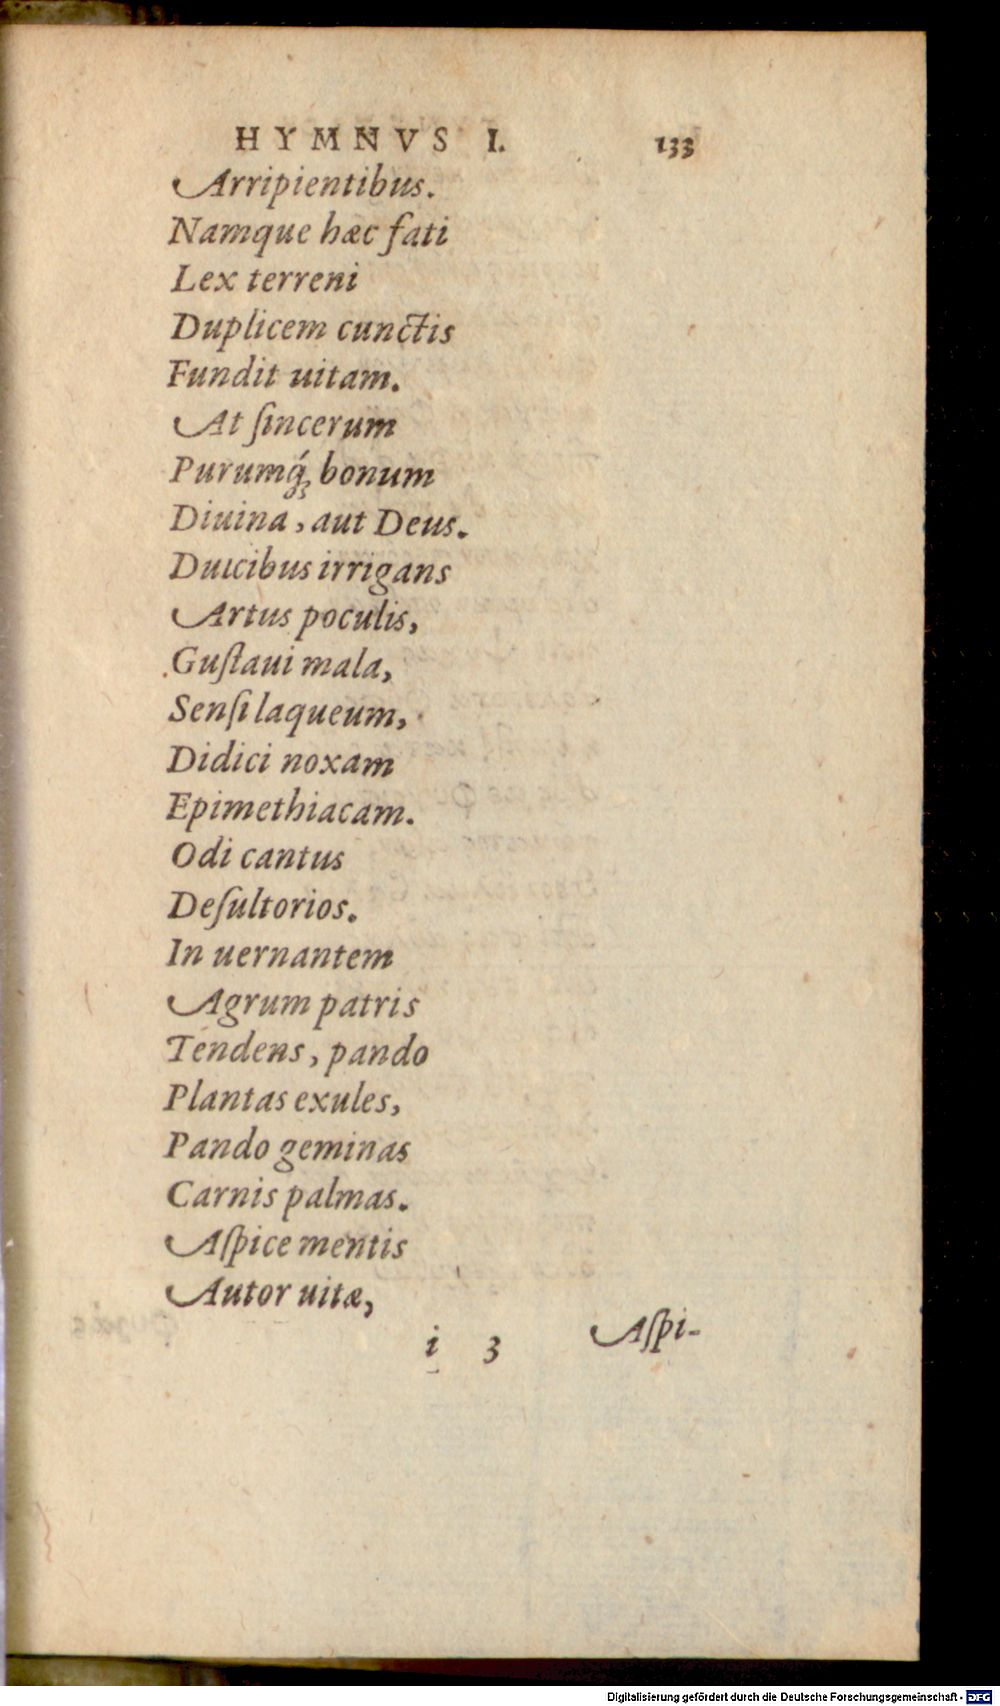 HYMNVS I. 133
Arripientibus.
Namque hæc fati
Lex terreni
Duplicem cunctis
Fundit uitam.
At ſincerum
Purumq́; bonum
Diuina, aut Deus.
Dulcibus irrigans
Artus poculis,
Guſtaui mala,
Senſi laqueum,
Didici noxam
Epimethiacam.
Odi cantus
Deſultorios.
In uernantem
Agrum patris
Tendens, pando
Plantas exules,
Pando geminas
Carnis palmas.
Aſpice mentis
Autor uitæ,
i 3 Aſpi-
Digitalisierung gefördert durch die Deutsche Forschungsgemeinschaft - DFG